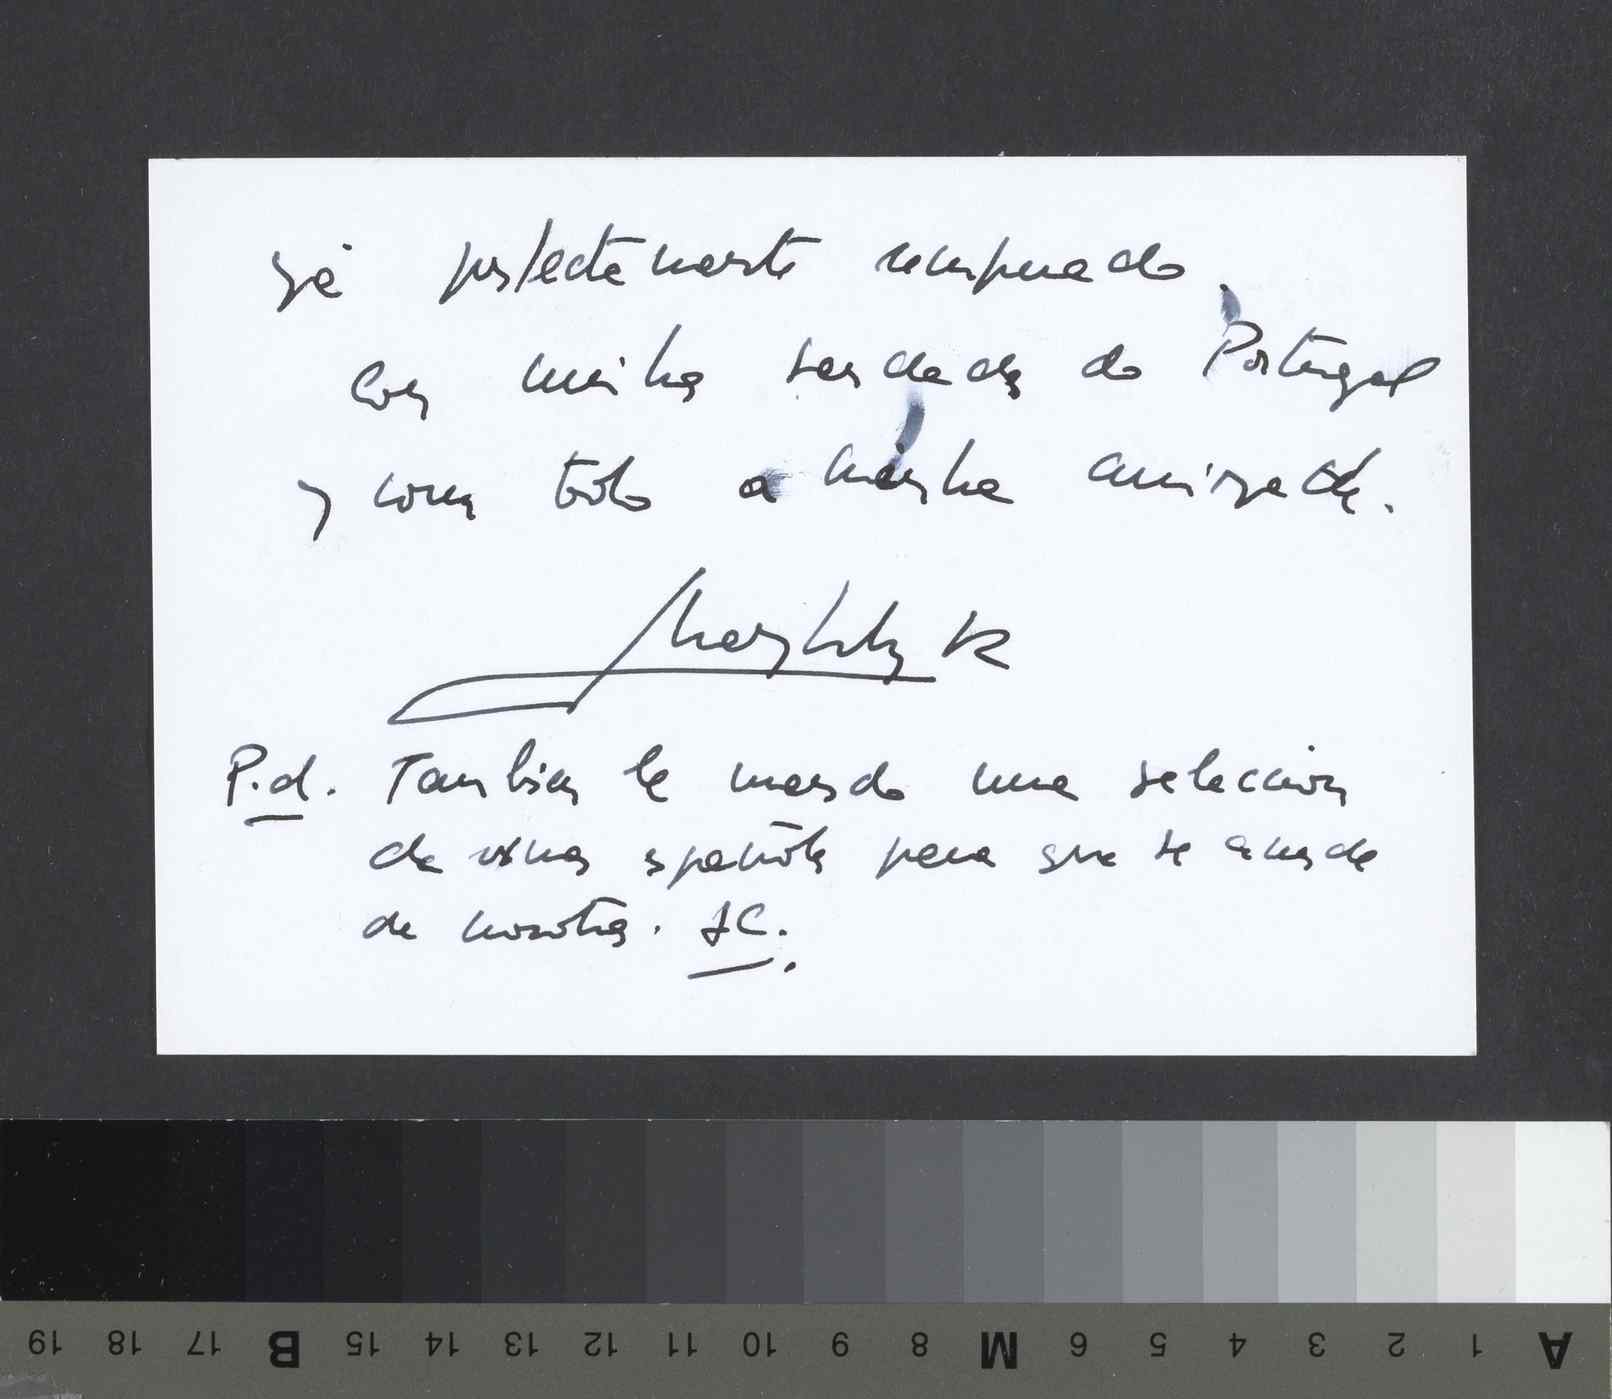 ya perfectamente recuperado.
Con minha saudade do Portugal
y com todo a minha amizade.
Juan Carlos R
P.d. Tambien le mando una seleccion
de vinos españoles para que se acuerde
de nosotros. JC.
19 18 17 B 15 14 13 12 11 10 9 8 M 6 5 4 3 2 1 A